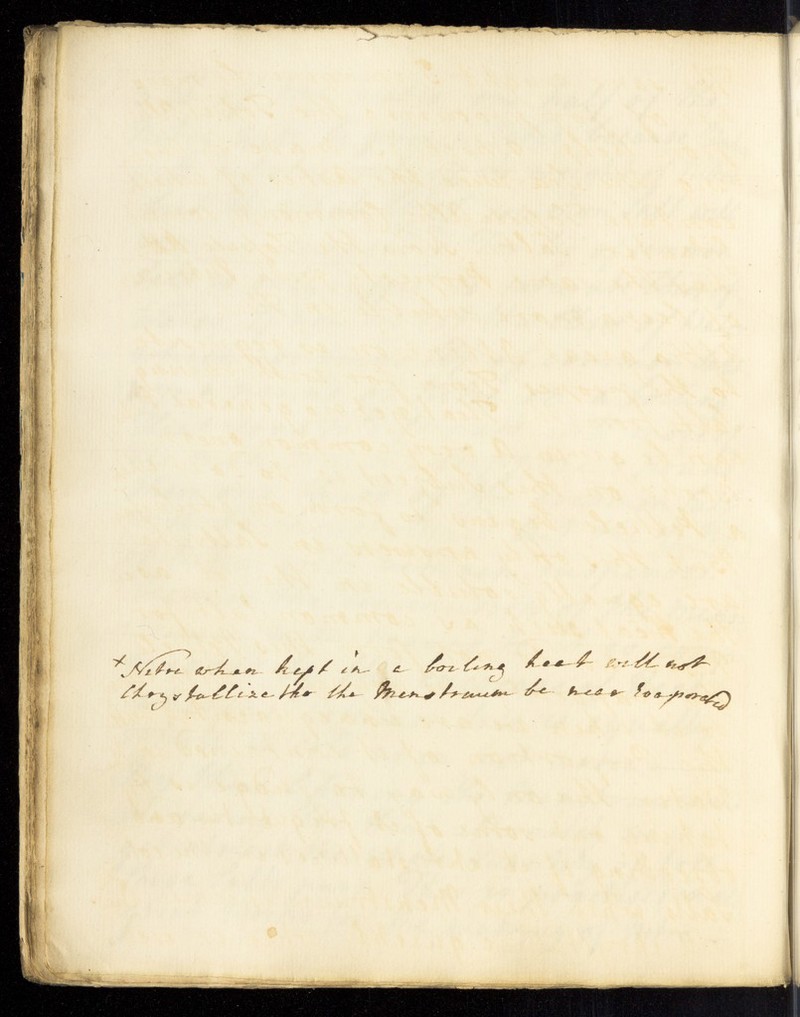 + Nitre when kept in a boiling heat will not
Chrystallize tho the Menstruum be near Evaporated